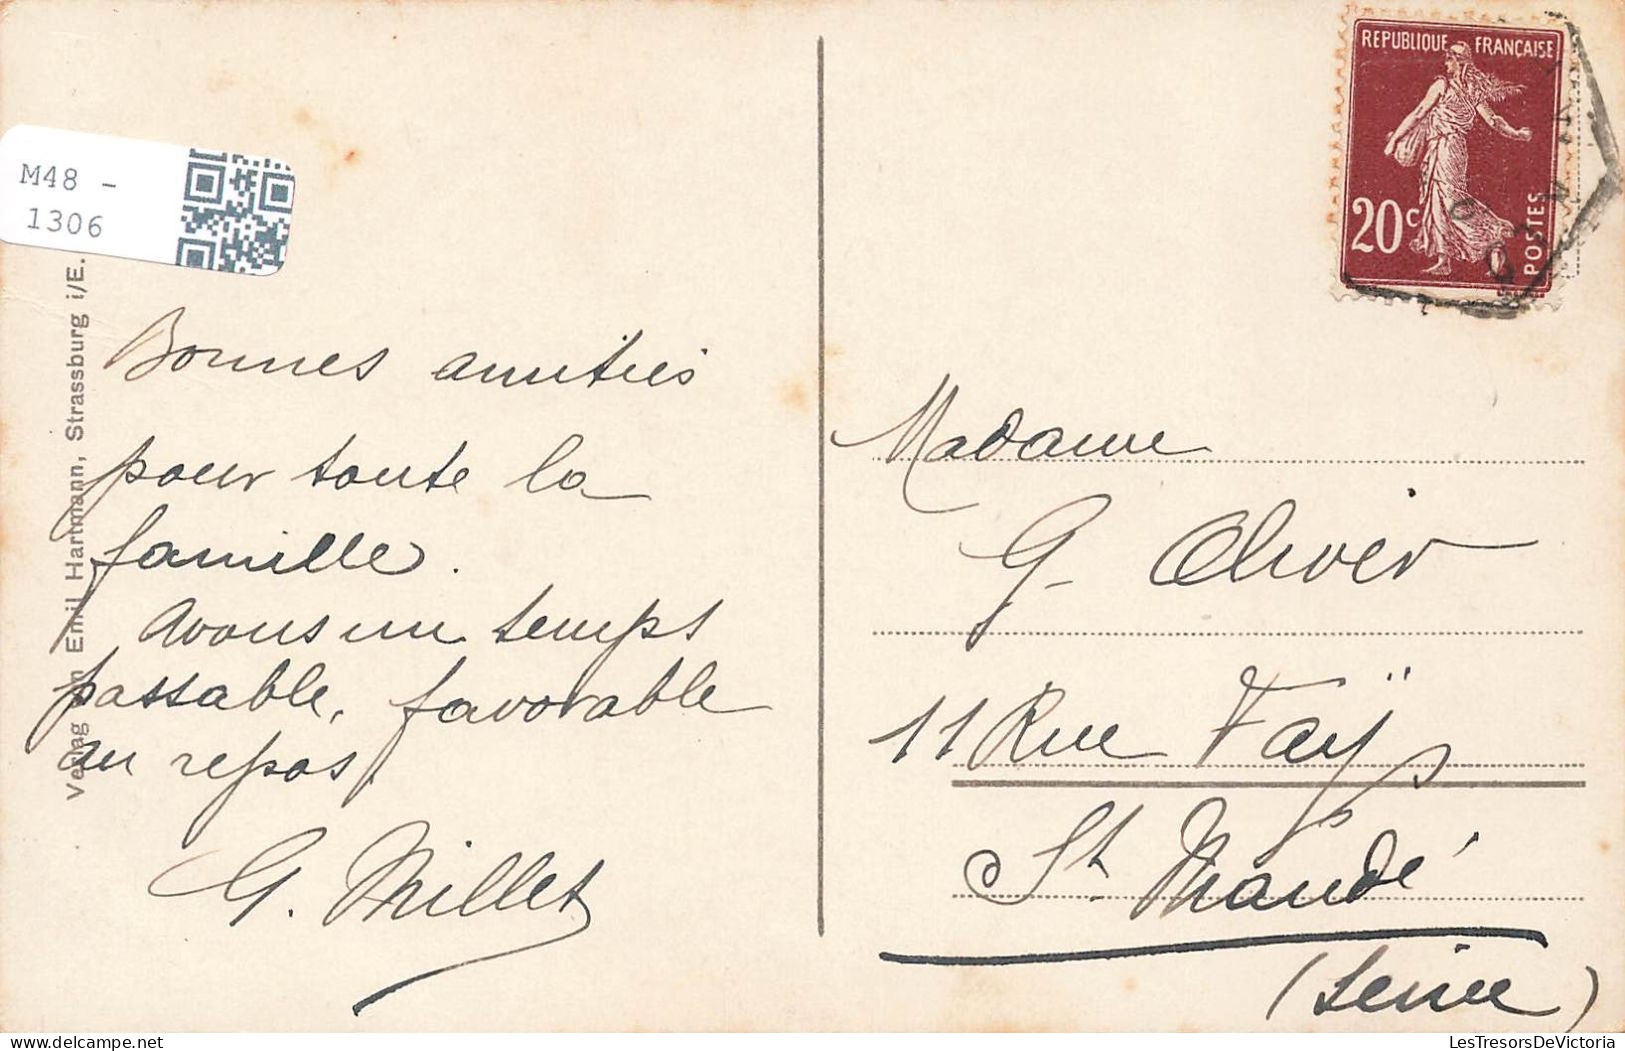 M48 -
1306
Verlag Emil Hartmann, Strassburg i/E.
Bonnes amitiés
pour toute la
famille.
Avons un temps
passable, favorable
au repos.
G. Millet
REPUBLIQUE FRANÇAISE
20c
POSTES
Madame
G. Olivier
11 Rue Faÿs
à St. Mandé
(Seine)
LesTresorsDeVictoria.com